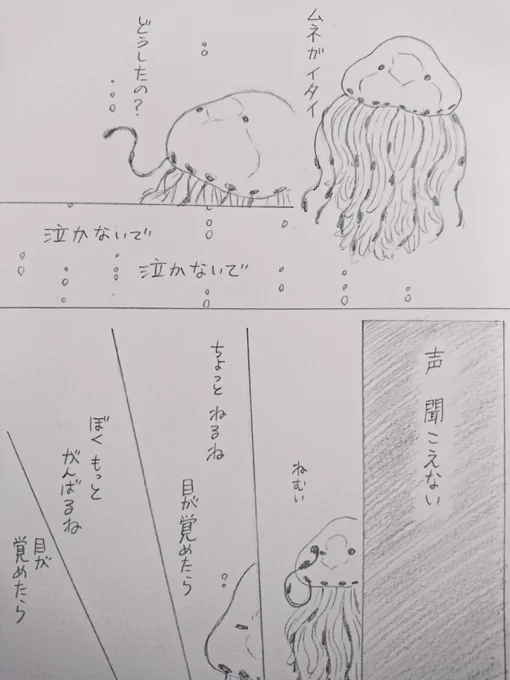 ムネがイタイ
どうしたの?
泣かないで
泣かないで
声 聞こえない
ねむい
ちょっと ねるね
目が覚めたら
ぼく もっと
がんばるね
目が
覚めたら